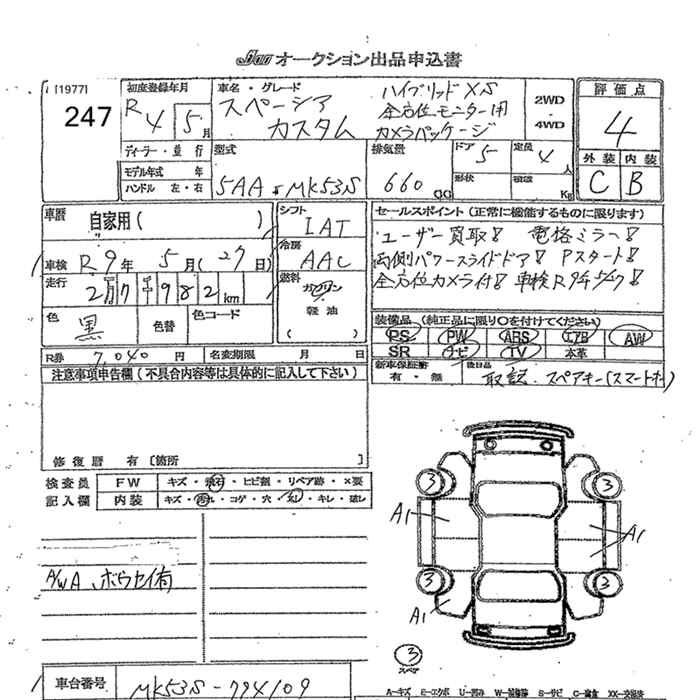 JU オークション出品申込書
[1977]
247
初度登録年月
R4 5月
車名・グレード
スペーシア
カスタム
ハイブリッドXS
全方位モニター用
カメラパッケージ
2WD
4WD
評価点
4
外装 内装
C B
ディーラー・並行
モデル年式 年
ハンドル 左・右
型式
5AA-MK53S
排気量
660 CC
ドア
5
定員
4人
形状
積載
Kg
車歴
自家用(       )
車検 R9年 5月(27日)
走行
2万7千982km
色
黒
色替
色コード
シフト
IAT
冷房
AAC
燃料
ガソリン
軽油
(    )
セールスポイント(正常に機能するものに限ります)
ユーザー買取! 電格ミラー!
両側パワースライドドア! Pスタート!
全方位カメラ付! 車検R9年5/27!
装備品 (純正品に限り○を付けてください)
PS PW ABS エアB AW
SR ナビ TV 本革
R券 7,040円
名変期限 月 日
新車保証書
有・無
後日品
取説、スペアキー(スマートキー)
注意事項申告欄(不具合内容等は具体的に記入して下さい)
修復歴 有 [箇所       ]
検査員
記入欄
FW
キズ・飛石・ヒビ割・リペア跡・×要
内装
キズ・汚れ・コゲ・穴・スレ・キレ・破レ
A/W A、ホウセイ有
A1
A1
A1
3
3
3
3
3
スペア
車台番号
MK53S-794109
A-キズ E-エクボ U-凹み W-補修跡 S-サビ C-腐食 XX-交換済